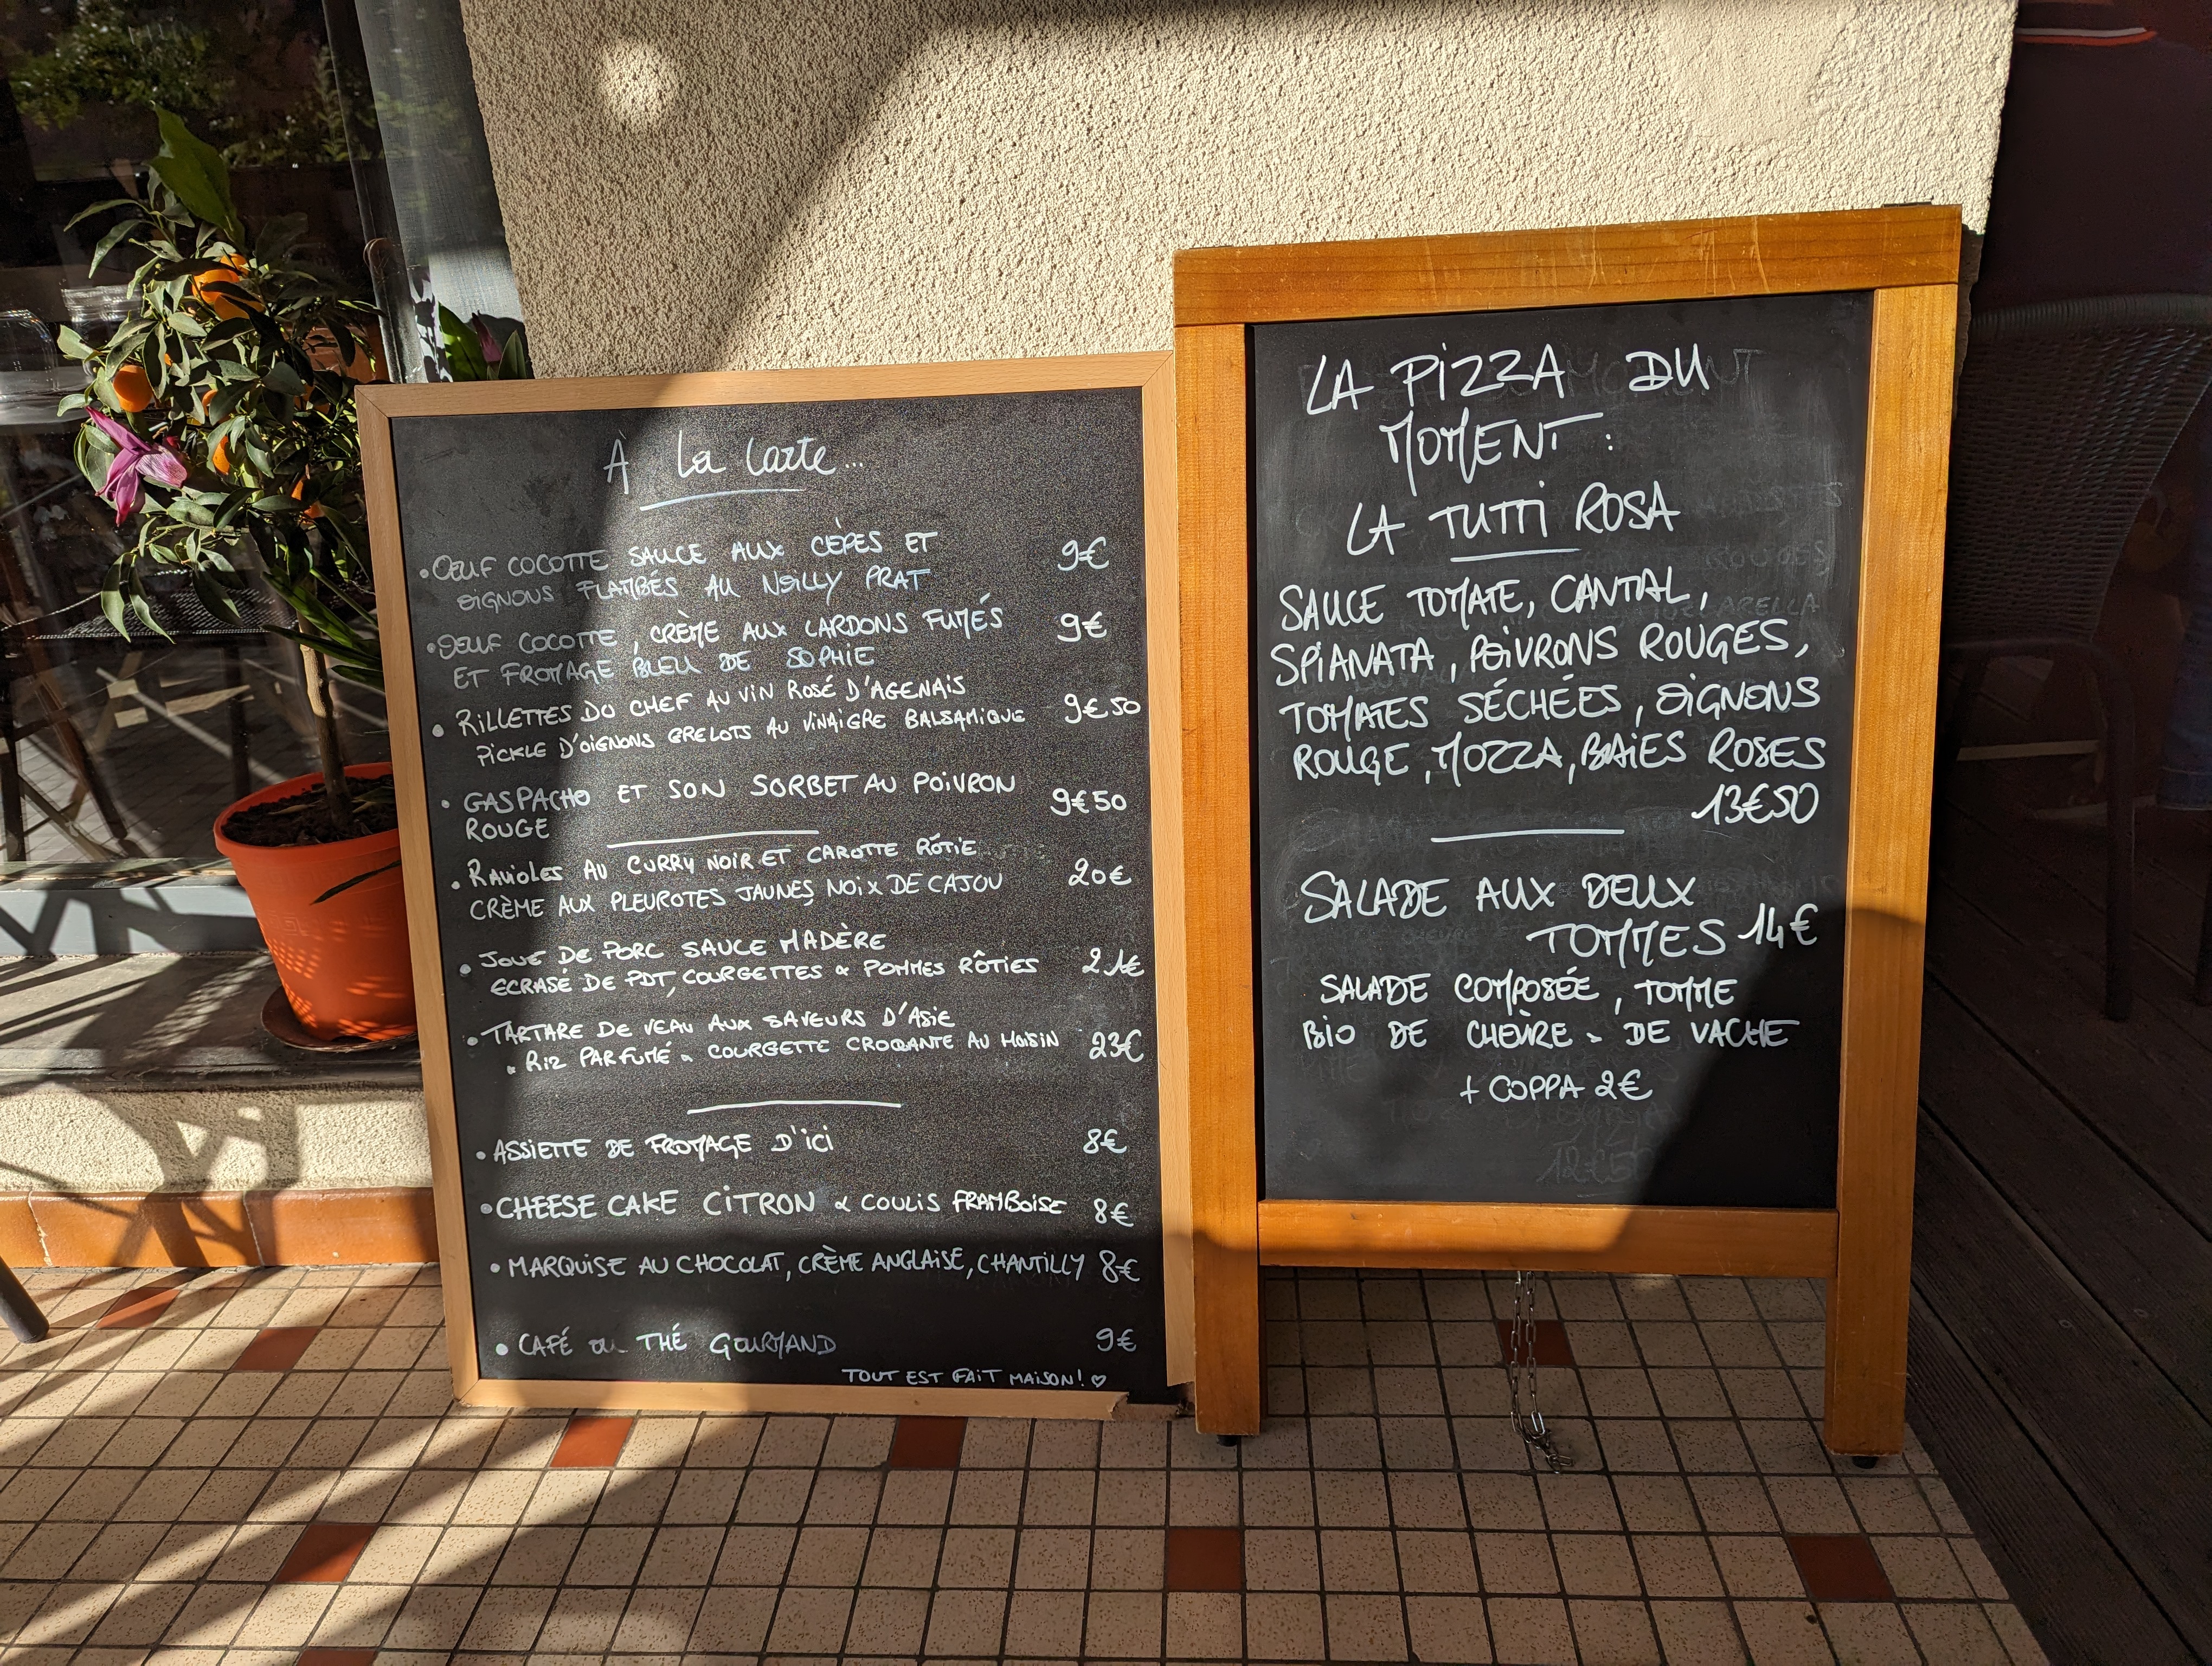 À La Carte...
• OEUF COCOTTE SAUCE AUX CÈPES ET 9€
OIGNONS FLAMBÉS AU NOILLY PRAT
• OEUF COCOTTE, CRÈME AUX LARDONS FUMÉS 9€
ET FROMAGE BLEU DE SOPHIE
• RILLETTES DU CHEF AU VIN ROSÉ D'AGENAIS 9€50
PICKLE D'OIGNONS GRELOTS AU VINAIGRE BALSAMIQUE
• GASPACHO ET SON SORBET AU POIVRON 9€50
ROUGE
• RAVIOLES AU CURRY NOIR ET CAROTTE RÔTIE 20€
CRÈME AUX PLEUROTES JAUNES, NOIX DE CAJOU
• JOUE DE PORC SAUCE MADÈRE
ECRASÉ DE PDT, COURGETTES & POMMES RÔTIES 21€
• TARTARE DE VEAU AUX SAVEURS D'ASIE
• RIZ PARFUMÉ & COURGETTE CROQUANTE AU HOISIN 23€
• ASSIETTE DE FROMAGE D'ICI 8€
• CHEESE CAKE CITRON & COULIS FRAMBOISE 8€
• MARQUISE AU CHOCOLAT, CRÈME ANGLAISE, CHANTILLY 8€
• CAFÉ OU THÉ GOURMAND 9€
TOUT EST FAIT MAISON! ♡
LA PIZZA DU
MOMENT :
LA TUTTI ROSA
SAUCE TOMATE, CANTAL,
SPIANATA, POIVRONS ROUGES,
TOMATES SÉCHÉES, OIGNONS
ROUGE, MOZZA, BAIES ROSES
13€50
SALADE AUX DEUX
TOMMES 14€
SALADE COMPOSÉE, TOMME
BIO DE CHÈVRE & DE VACHE
+ COPPA 2€